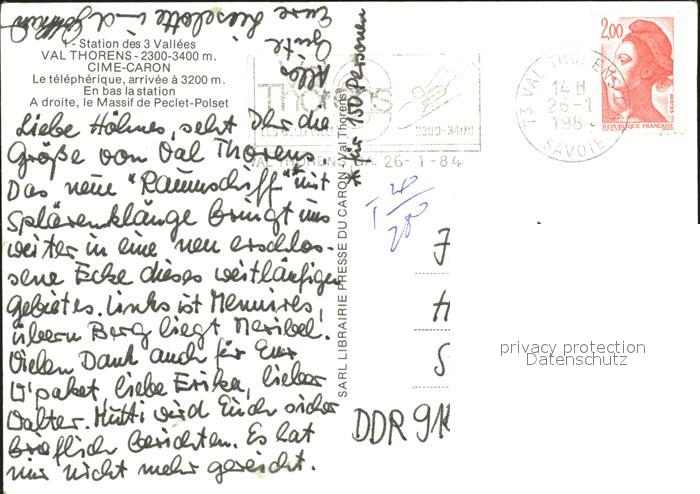 1 - Station des 3 Vallées
VAL THORENS - 2300-3400 m.
CIME-CARON
Le téléphérique, arrivée à 3200 m.
En bas la station
A droite, le Massif de Peclet-Polset
Liebe Höhnes, seht Ihr die
Größe von Val Thorens.
Das neue "Raumschiff"* mit
Sphärenklänge bringt uns
weiter in eine neu erschlos-
sene Ecke dieses weitläufigen
Gebietes. Links ist Menuires,
übern Berg liegt Meribel.
Vielen Dank auch für Euer
W'paket, liebe Erika, lieber
Walter. Mutti wird Euch sicher
brieflich berichten. Es hat
mir nicht mehr gereicht.
Alles
Gute
Eure Lieselotte
* für 150 Personen
SARL LIBRAIRIE PRESSE DU CARON - Val Thorens
Val
Thorens
2300-3400
VAL THORENS 26-1-84
73 VAL THORENS
14H
26-1
198
SAVOIE
2,00
POSTES
REPUBLIQUE FRANÇAISE
J
H
S
DDR 91
privacy protection
Datenschutz